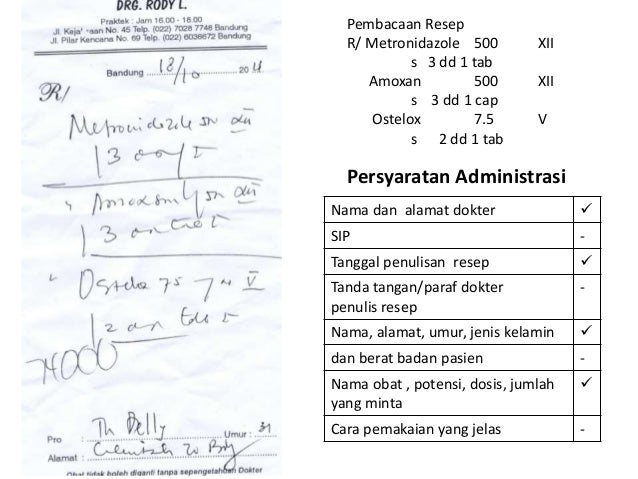 DRG. RODY L.
Praktek : Jam 16.00 - 18.00
Jl. Keja' aan No. 45 Telp. (022) 7028 7748 Bandung
Jl. Pilar Kencana No. 69 Telp. (022) 6036672 Bandung
Bandung 18/10 2011
R/
Metronidazole 500 XII
3
Amoxan
3
Ostelox 7.5 V
2
74000
Pro : Tn Delly Umur : 31
Alamat :
Obat tidak boleh diganti tanpa sepengetahuan Dokter
Pembacaan Resep
R/ Metronidazole 500 XII
s 3 dd 1 tab
Amoxan 500 XII
s 3 dd 1 cap
Ostelox 7.5 V
s 2 dd 1 tab
Persyaratan Administrasi
Nama dan alamat dokter ✓
SIP -
Tanggal penulisan resep ✓
Tanda tangan/paraf dokter -
penulis resep
Nama, alamat, umur, jenis kelamin ✓
dan berat badan pasien -
Nama obat , potensi, dosis, jumlah ✓
yang minta
Cara pemakaian yang jelas -